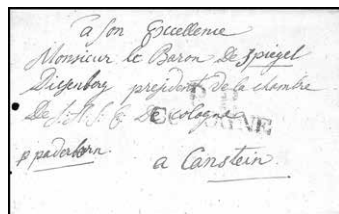 a son Excellence
Monsieur le Baron De Spiegel
Disenberg president de la chambre
De S: A: S: E De Cologne
COLOGNE
p paderborn.
a Canstein.